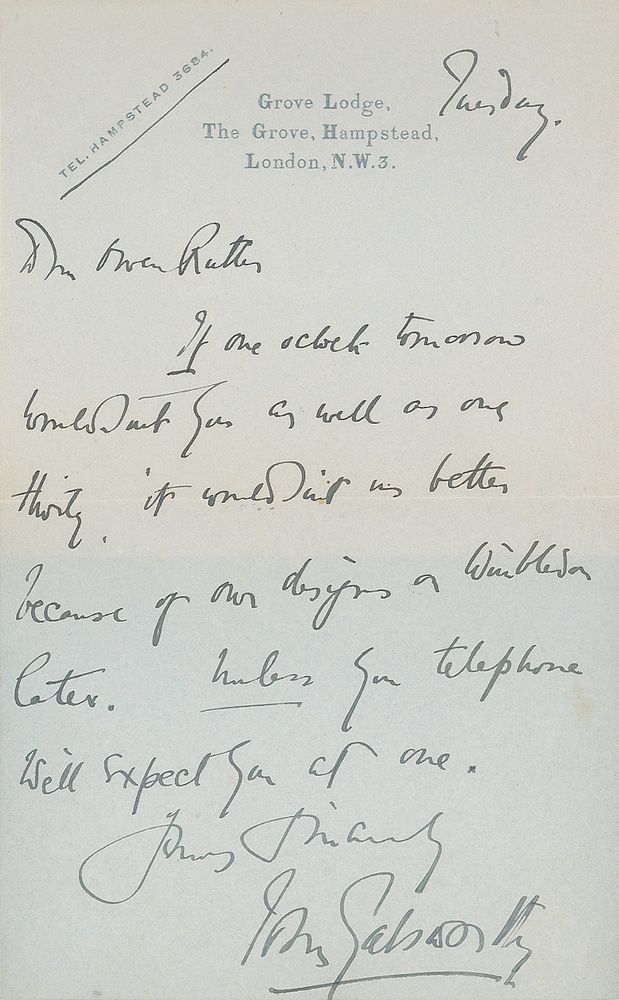 TEL. HAMPSTEAD 3684.
Grove Lodge,
The Grove, Hampstead,
London, N.W.3.
Tuesday.
Dear Owen Rutter
If one oclock tomorrow
would suit you as well as one
thirty, it would suit us better
because of our designs on Wimbledon
later. Unless you telephone
will expect you at one.
Yours sincerely
John Galsworthy